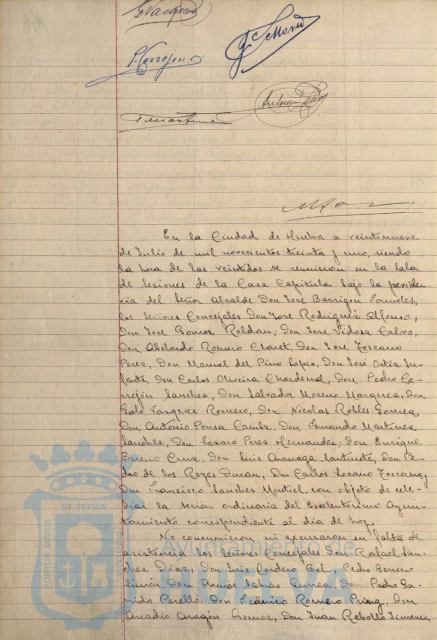 En la Ciudad de Huelva a veintinueve
de Julio de mil novecientos treinta y uno, siendo
la hora de las veintidos se reunieron en la Sala
de Sesiones de la Casa Capitular bajo la presiden
cia del Señor Alcalde Don José Barrigón Fornieles,
los Señores Concejales Don José Rodriguez Alfonso,
Don José Gomez Roldán, Don José Vidosa Calvo,
Don Abelardo Romero Claret, Don José Toscano
Perez, Don Manuel del Pino Lopez, Don José Ortiz In
fante, Don Carlos Oliveira Chardenal, Don Pedro Ce
rrejón Sanchez, Don Salvador Moreno Marquez, Don
Galo Vazquez Romero, Don Nicolas Robles Gomez,
Don Antonio Pousa Camba, Don Fernando Martinez
Sanchez, Don Lozano Perez Hernandez, Don Enrique
Bueno Cruz, Don Luis
de los Reyes Duran, Don Carlos Lozano Toscano,
Don Francisco Sanchez Montiel, con objeto de cele
brar la sesión ordinaria del Excelentisimo Ayun
tamiento correspondiente al dia de hoy.
No concurrieron ni excusaron su falta de
asistencia los Señores Concejales Don Rafael San
chez Diaz, Don Luis Cordero Bel, Pedro Borrero
Limón, Don Amos Sabrás Gurrea, Don Pedro Ga
rrido Perelló, Don Federico Romero
Arcadio Aragón Gomez, Don Juan Rebollo Jimenez